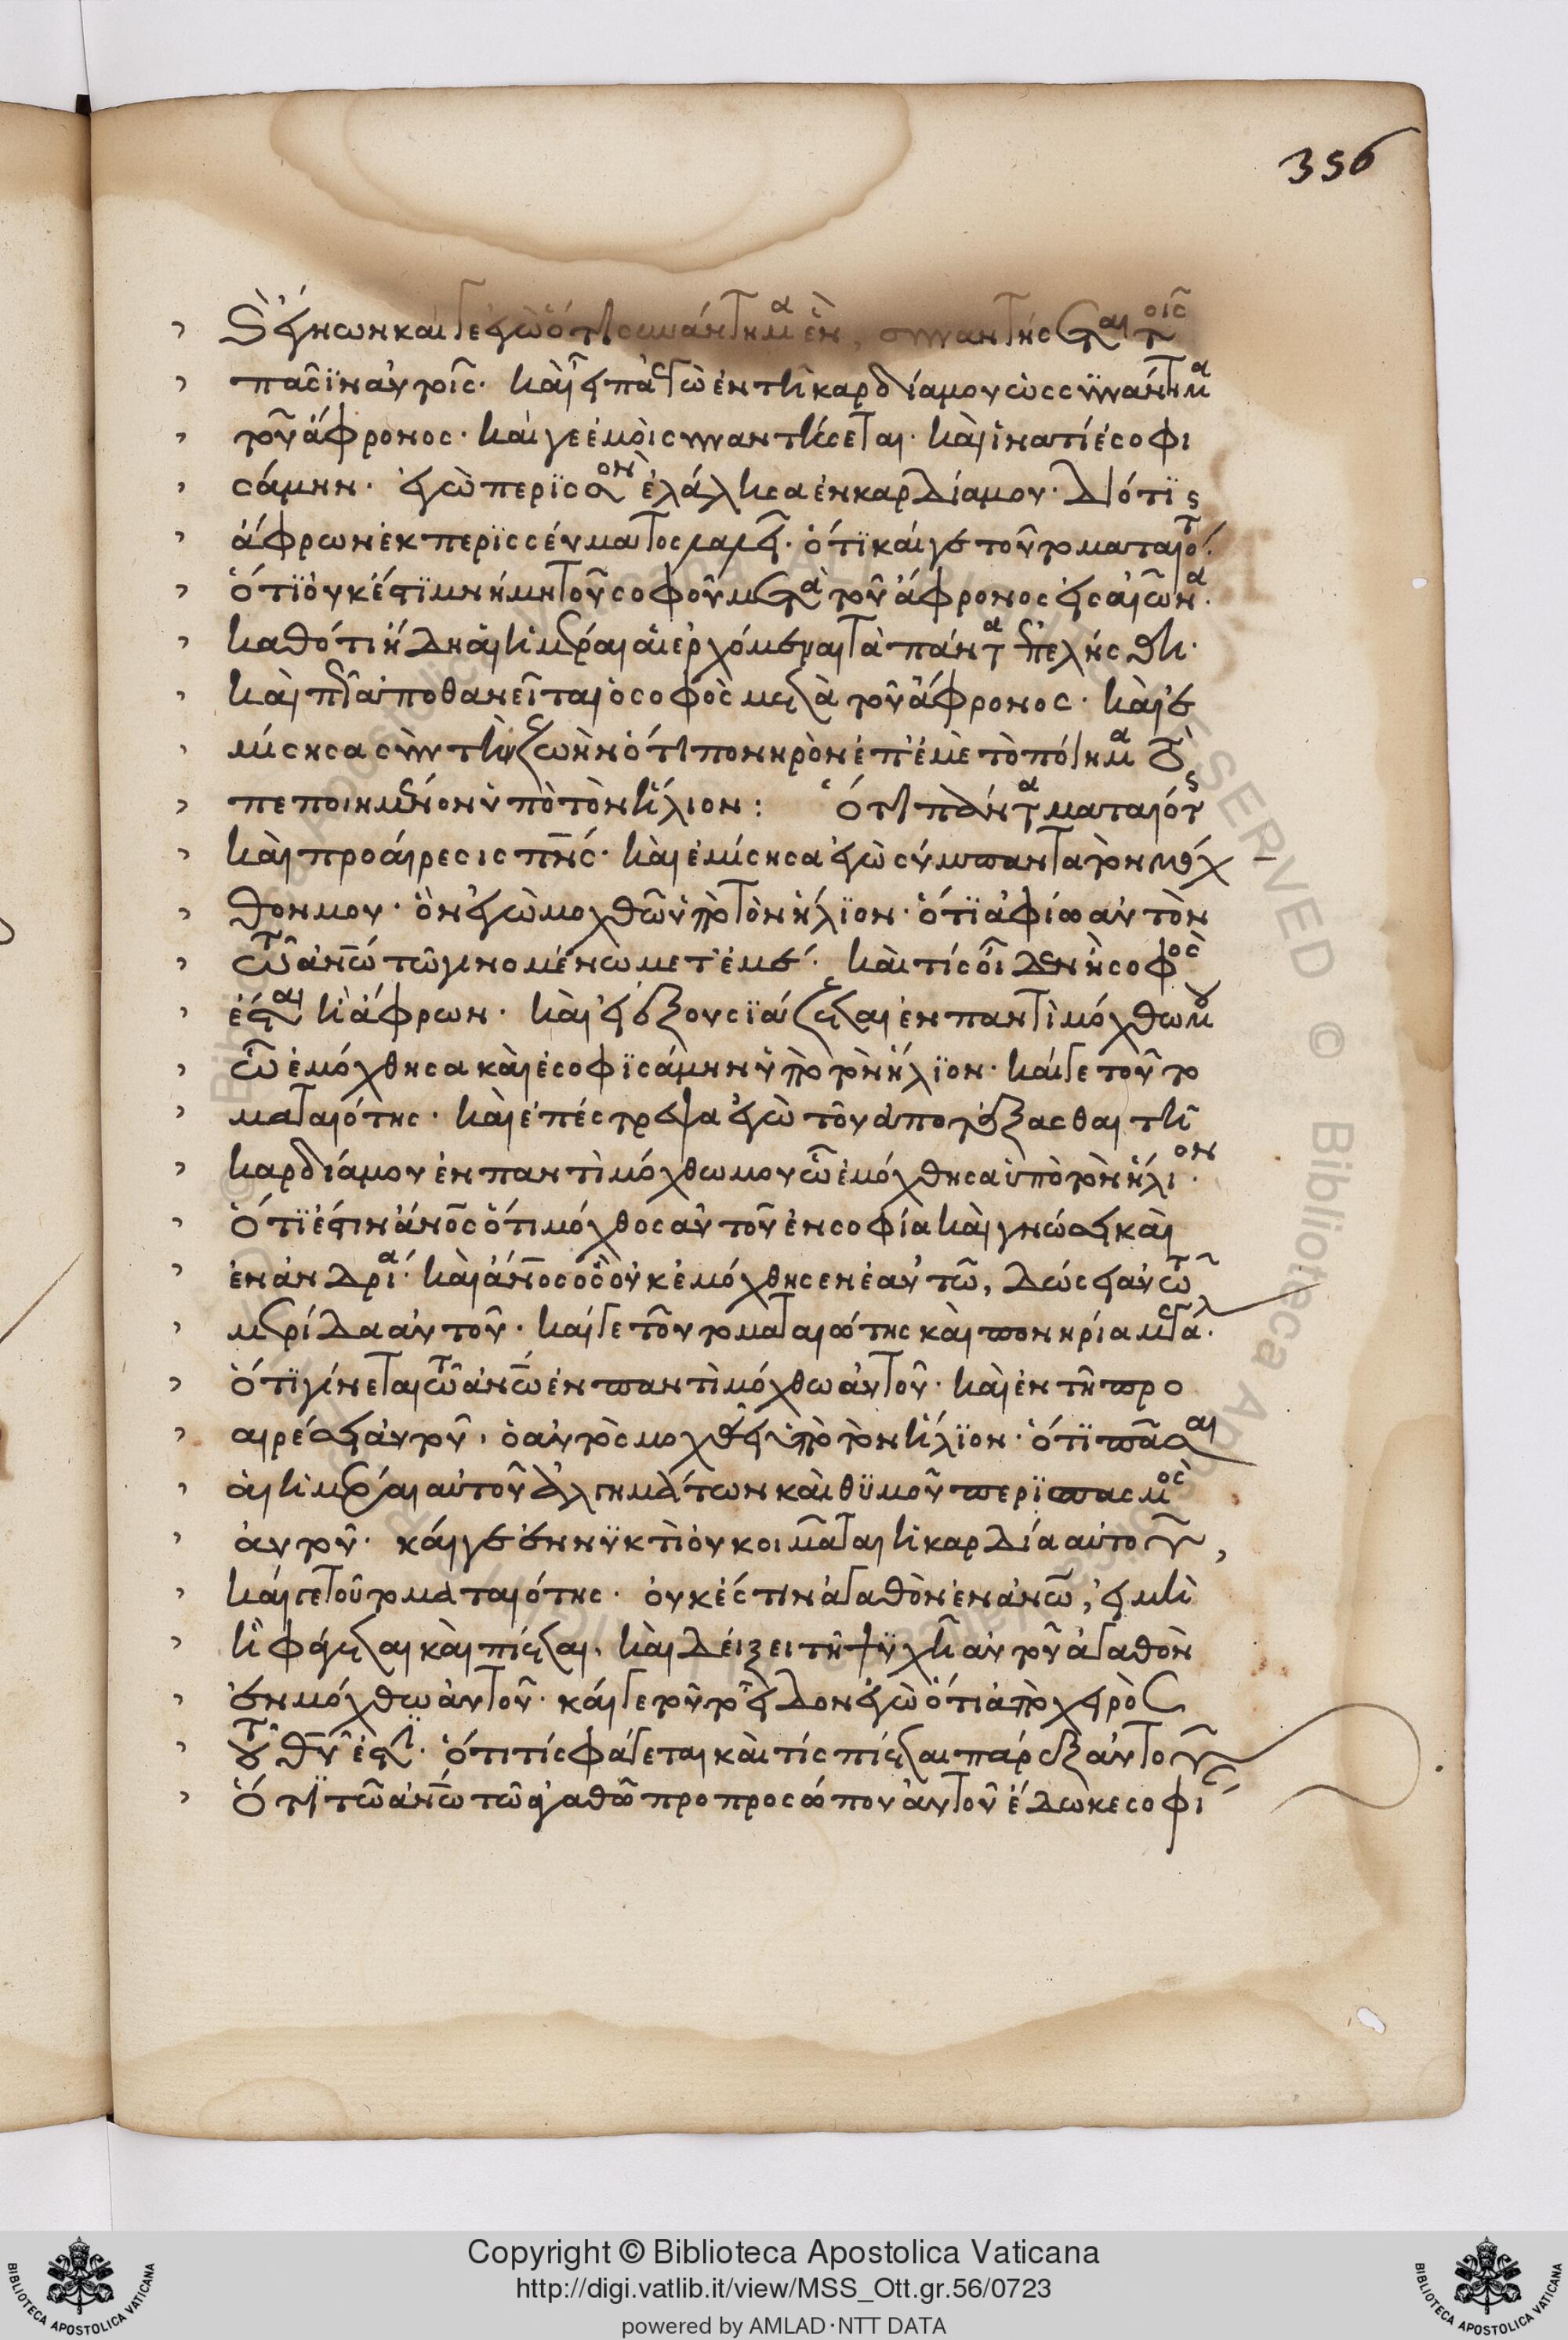 356
καὶ ἔγνων καί γε ἐγὼ ὅτι συνάντημα ἓν, συναντήσεται τοῖς
πᾶσϊν αὐτοῖς. καὶ εἶπα ἐγὼ ἐν τῆ καρδία μου ὡς συνάντημα
τοῦ ἄφρονος. καί γε ἐμοὶ συναντήσεται. καὶ ἱνατί ἐσοφι
σάμην. ἐγὼ περϊσσὸν ἐλάλησα ἐν καρδία μου. διότϊ ὁ
ἄφρων ἐκ περϊσσεύματος λαλεῖ. ὅτϊ καί γε τοῦτο ματαιότης.
ὅτϊ οὐκ ἔστϊ μνήμη τοῦ σοφοῦ μετὰ τοῦ ἄφρονος εἰς αἰῶνα.
καθότι ἤδη αἱ ἡμέραι αἱ ἐρχόμεναι τὰ πάντα ἐπελήσθη.
καὶ πῶς ἀποθανεῖται ὁ σοφὸς μετὰ τοῦ ἄφρονος. καὶ ἐ
μίσησα σὺν τὴν ζωὴν ὅτι πονηρὸν ἐπ' ἐμὲ τὸ πόιημα τὸ
πεποιημένον ὑπὸ τὸν ἥλιον: ὅτι πάντα ματαιότης
καὶ προαίρεσις πνς. καὶ ἐμίσησα ἐγὼ σύμπαντα τὸν μόχ
θον μου. ὃν ἐγὼ μοχθῶ ὑπὸ τὸν ἥλϊον. ὅτϊ ἀφίω αὐτὸν
τῶ ἀνω τῶ γινομένω μετ' ἐμέ. καὶ τίς οἶδεν ἢ σοφὸς
ἔσται ἢ ἄφρων. καὶ ἐξουσϊάζεται ἐν παντὶ μόχθω μου
ὧ ἐμόχθησα καὶ ἐσοφϊσάμην ὑπὸ τὸν ἥλϊον. καί γε τοῦτο
ματαιότης. καὶ ἐπέστρεψα ἐγὼ τοῦ ἀποτάξασθαι τῆ
καρδία μου ἐν παντὶ μόχθω μου ὧ ἐμόχθησα ὑπὸ τὸν ἥλιον.
ὅτϊ ἔστιν ἄνος ὅτι μόχθος αὐτοῦ ἐν σοφία καὶ γνώσει καὶ
ἐν ἀνδρία. καὶ ἄνος ὃς οὐκ ἐμόχθησεν ἑαυτῶ, δώσει αὐτῶ
μερίδα αὐτοῦ. καί γε τοῦτο ματαιότης καὶ πονηρία μεγάλη.
ὅτϊ γίνεται τῶ ἀνω ἐν παντὶ μόχθω αὐτοῦ. καὶ ἐν τῆ προ
αιρέσει αὐτοῦ, ὃ αὐτὸς μοχθεῖ ὑπὸ τὸν ἥλϊον. ὅτϊ πᾶσαι
αἱ ἡμέραι αὐτοῦ ἀλγημάτων καὶ θϋμοῦ περϊσπασμὸς
αὐτοῦ. καί γε ἐν νϋκτὶ οὐ κοιμᾶται ἡ καρδία αὐτοῦ,
καί γε τοῦτο ματαιότης. οὐκ ἔστιν ἀγαθὸν ἐν ἀνω, εἰ μὴ
ἢ φάγεται καὶ πίεται, καὶ δείξει τῆ ψϋχῆ αὐτοῦ ἀγαθὸν
ἐν μόχθω αὐτοῦ. καί γε τοῦτο εἶδον ἐγὼ ὅτι ἀπὸ χειρὸς
τοῦ θυ ἐστϊ. ὅτι τίς φάγεται καὶ τίς πίεται παρὲξ αὐτοῦ
ὅτι τῶ ἀνω τῶ ἀγαθῶ προ προσώπου αὐτοῦ ἔδωκε σοφί
Copyright © Biblioteca Apostolica Vaticana
http://digi.vatlib.it/view/MSS_Ott.gr.56/0723
powered by AMLAD·NTT DATA